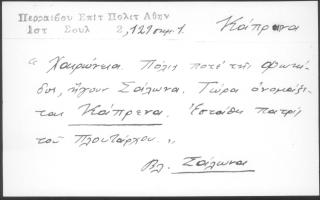 Περραιβου Επιτ Πολιτ Αθην
Ιστ Σουλ 2, 121 σημ. 1. Κάπρενα
"Χαιρώνεια. Πόλις ποτέ τῆς Φωκί-
δος, ἤγουν Σάλωνα. Τώρα ὀνομάζε-
ται Κάπρενα. Ἐστάθη πατρίς
τοῦ Πλουτάρχου."
Βλ. Σάλωνα